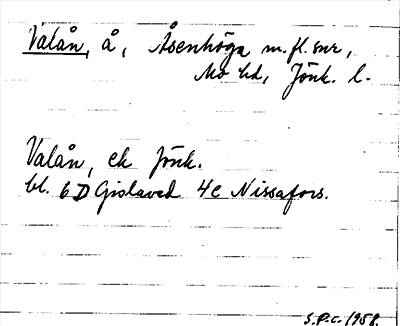 Valån, å, Åsenhöga m.fl. snr,
Mo hd, Jönk. l.
Valån, ek Jönk.
bl. 6D Gislaved 4c Nissafors.
S.P.C. 1958.